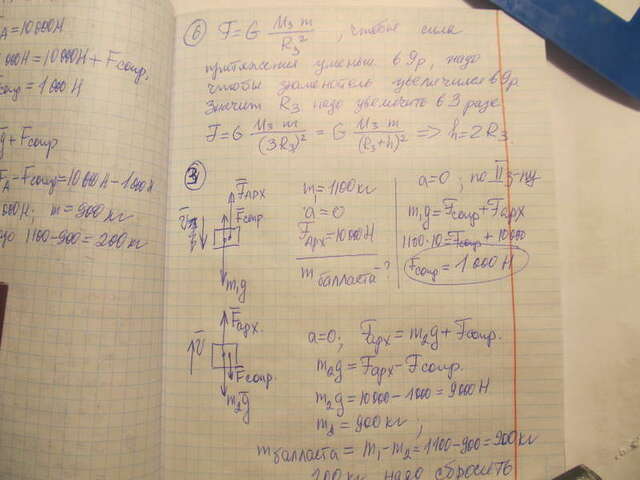 A=10000Н
000Н=10000Н+Fсопр.
Fсопр=1000Н
g+Fсопр
FA-Fсопр=10000Н-1000Н
000Н; m=900кг
1100-900=200кг
6) F=G Mз m / Rз², чтобы сила
притяжения уменьш. в 9р, надо
чтобы знаменатель увеличился в 9р
Значит Rз надо увеличить в 3 раза
F=G Mз m / (3Rз)² = G Mз m / (Rз+h)² => h=2Rз.
3)
Fарх
Fсопр
V
m₁g
m₁=1100кг
a=0
Fарх=10000Н
m балласта-?
a=0; по II з-ну
m₁g=Fсопр+Fарх
1100·10=Fсопр+10000
Fсопр=1000Н
Fарх.
V
Fсопр.
m₂g
a=0; Fарх=m₂g+Fсопр.
m₂g=Fарх-Fсопр.
m₂g=10000-1000=9000Н
m₂=900кг;
mбалласта=m₁-m₂=1100-900=200кг
200кг надо сбросить